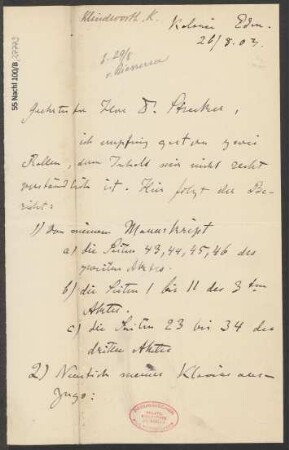 Klindworth K.
Kolonie
26/8.03.
b. 29/8
55 Nachl 100/B
Geehrter Herr Dr.
ich empfing gestern zwei
Rollen, deren Inhalt mir nicht recht
verständlich ist. Hier folgt der Be-
richt:
1) Von meinem Manuskript
a) die Seiten 43, 44, 45, 46 des
zweiten Aktes.
b) die Seiten 1 bis 11 des 3ten
Aktes.
c) die Seiten 23 bis 34 des
dritten Aktes
2) meines Klavieraus-
zugs: